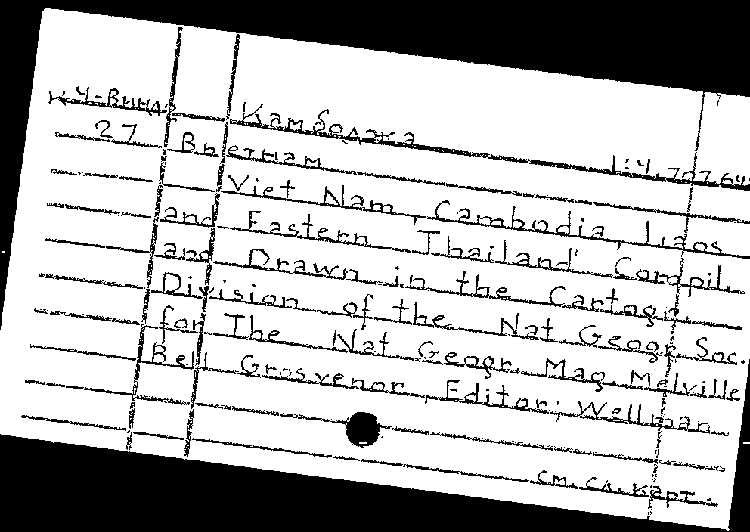 К4-Винд Камбоджа
27 Вьетнам 1:4,707,64
Viet Nam, Cambodia, Liaos
and Eastern Thailand Compil.
and Drawn in the Cartogr.
Division of the Nat. Geogr. Soc.
for The Nat Geogr. Mag. Melville
Bell Grosvenor, Editor; Wellman
см. сл. карт.